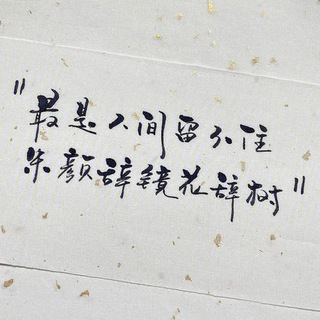 "最是人间留不住
朱颜辞镜花辞树"